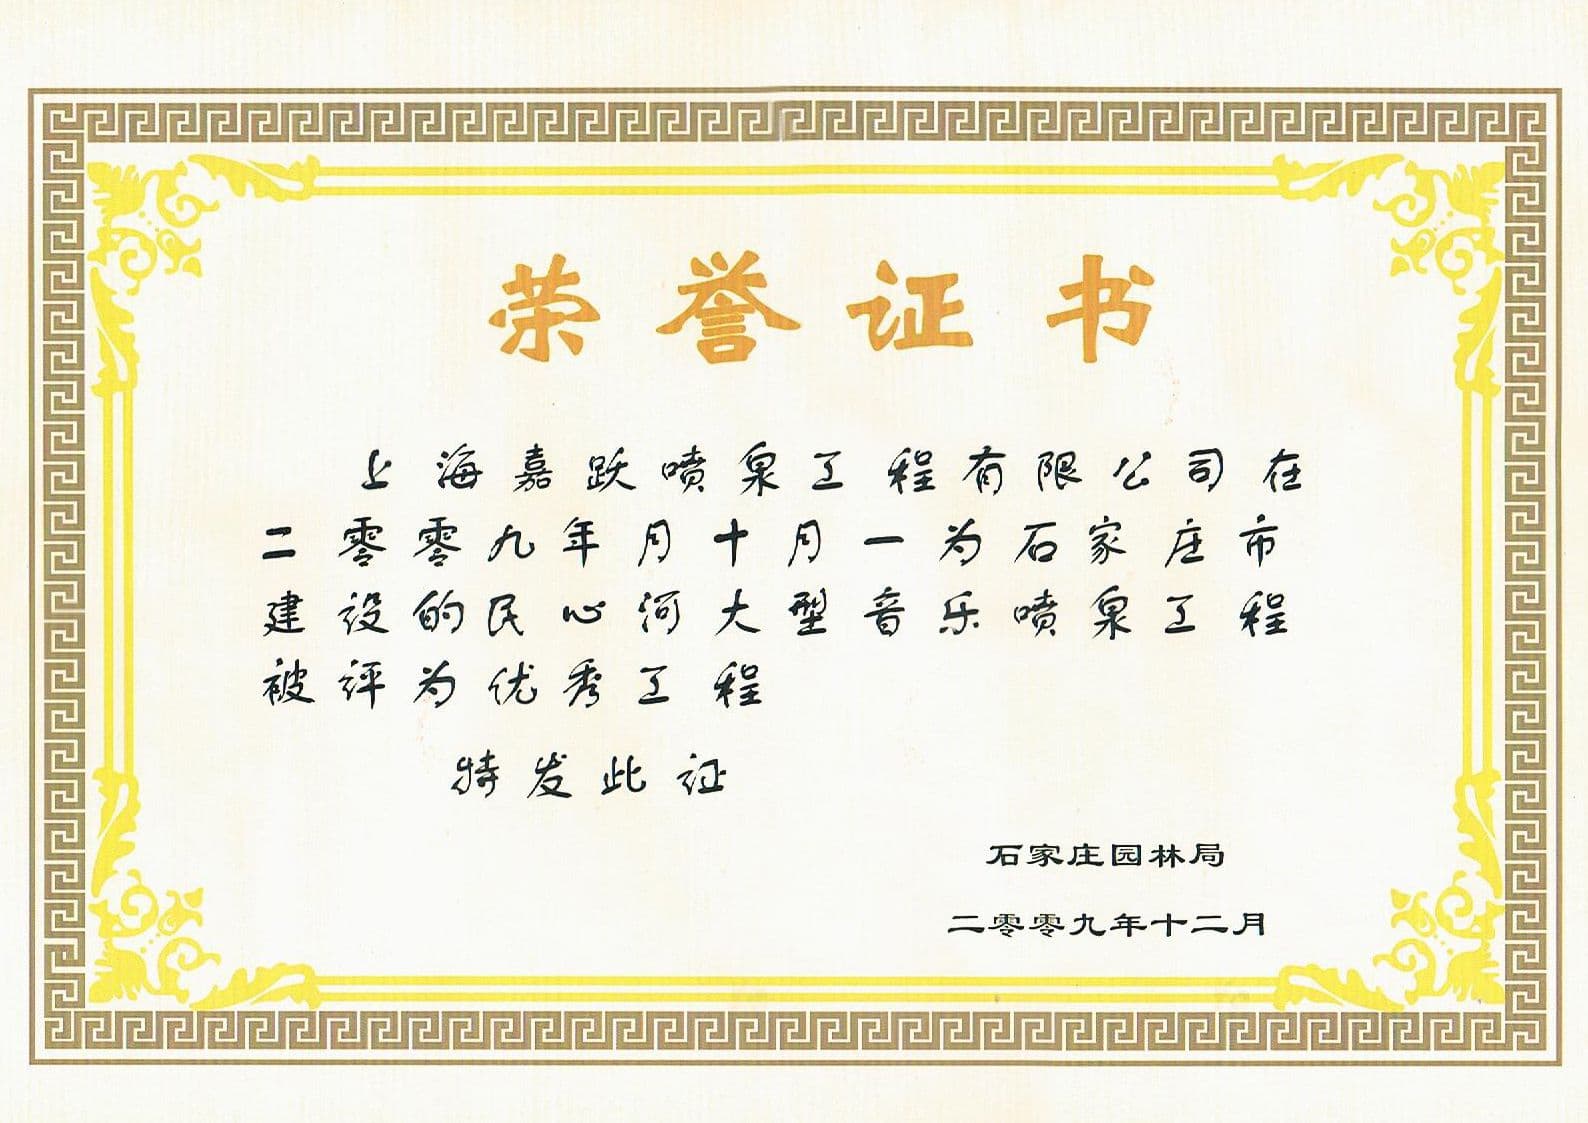 荣誉证书
上海嘉跃喷泉工程有限公司在
二零零九年月十月一为石家庄市
建设的民心河大型音乐喷泉工程
被评为优秀工程
特发此证
石家庄园林局
二零零九年十二月